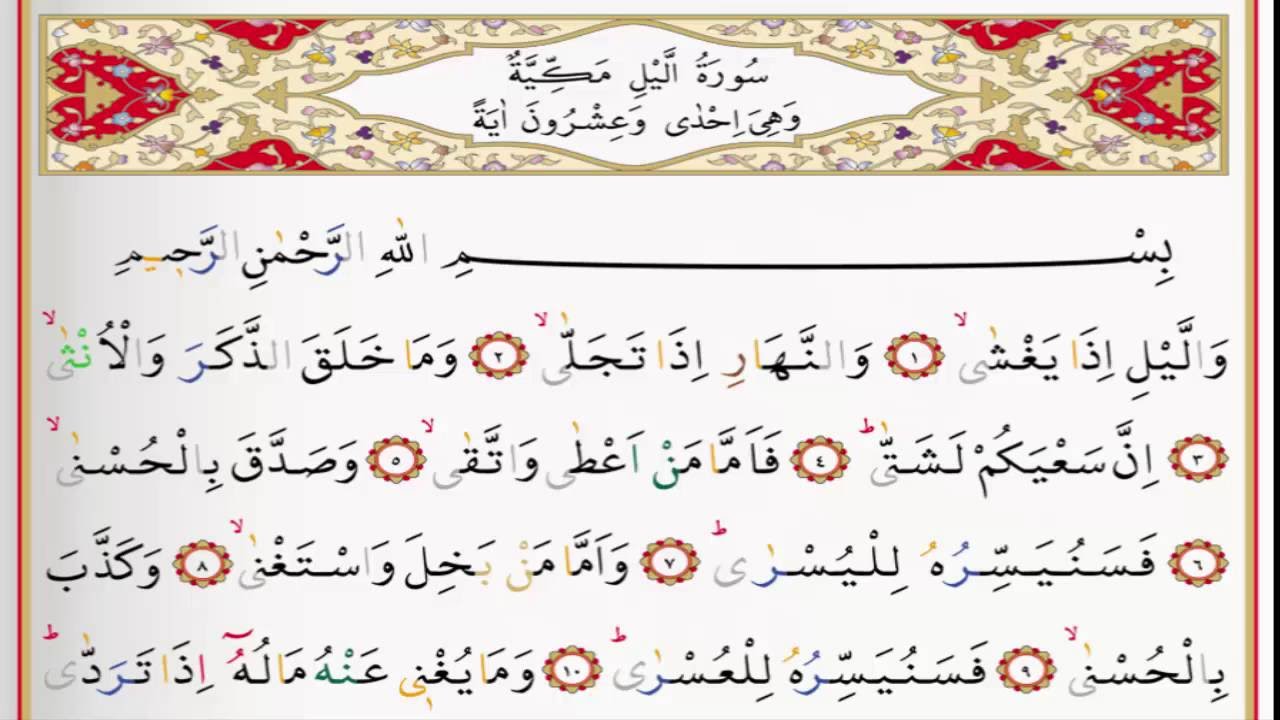 سُورَةُ الَّيْلِ مَكِّيَّةٌ
وَهِيَ اِحْدٰى وَعِشْرُونَ اٰيَةً
بِسْمِ اللّٰهِ الرَّحْمٰنِ الرَّحِيمِ
وَالَّيْلِ اِذَا يَغْشٰىۙ ﴿١﴾ وَالنَّهَارِ اِذَا تَجَلّٰىۙ ﴿٢﴾ وَمَا خَلَقَ الذَّكَرَ وَالْاُنْثٰىۙ
﴿٣﴾ اِنَّ سَعْيَكُمْ لَشَتّٰىۜ ﴿٤﴾ فَاَمَّا مَنْ اَعْطٰى وَاتَّقٰىۙ ﴿٥﴾ وَصَدَّقَ بِالْحُسْنٰىۙ
﴿٦﴾ فَسَنُيَسِّرُهُ لِلْيُسْرٰىۜ ﴿٧﴾ وَاَمَّا مَنْ بَخِلَ وَاسْتَغْنٰىۙ ﴿٨﴾ وَكَذَّبَ
بِالْحُسْنٰىۙ ﴿٩﴾ فَسَنُيَسِّرُهُ لِلْعُسْرٰىۜ ﴿١٠﴾ وَمَا يُغْنٖي عَنْهُ مَالُهُٓ اِذَا تَرَدّٰىۜ